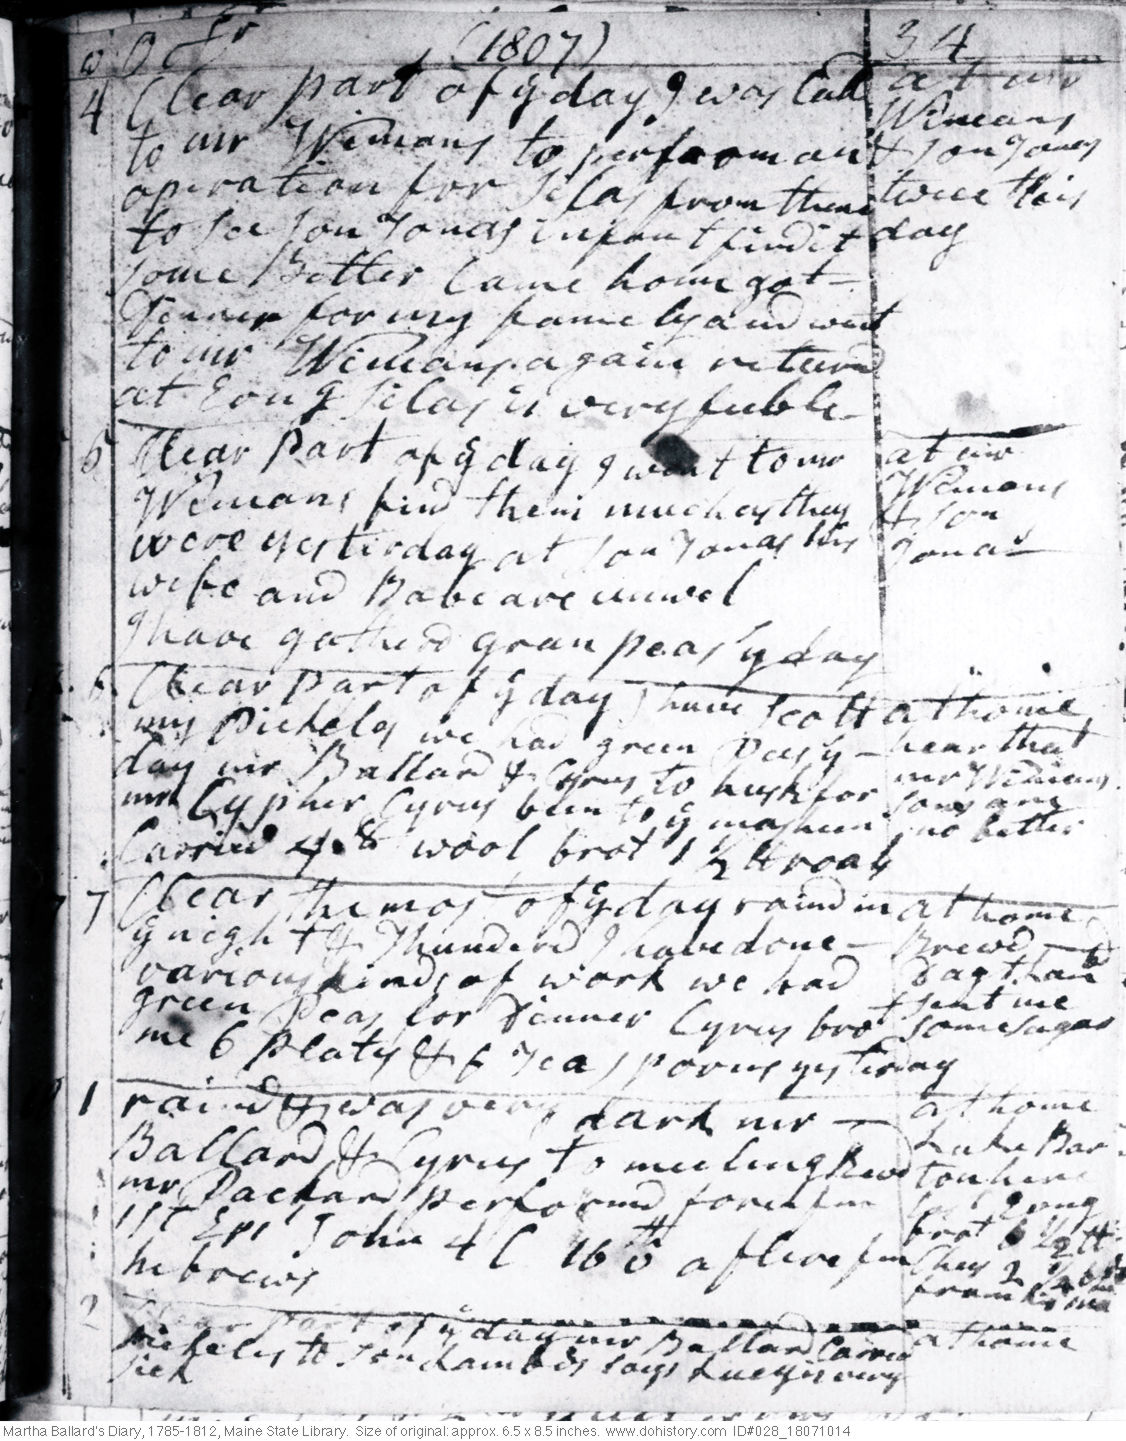 w O r (1807) 34
4 Clear part of ÿ day I was Calld
to mr Wimans to perfoom an
operation for Silas from thence
to see son Jonas infant find it
some Better Came home got
Dinner for my famely and went
to mr Wimans again returnd
at Eong Silas is very feeble
at mr
Wimans
& son Jonas
twice this
day
5 Clear Part of ÿ day I went to mr
Wimans find them much as they
were yesterday at son Jonas his
wife and Babe are unwel
I have gatherd grean peas ÿ day
at mr
Wimans
& son
Jonas
6 Clear part of ÿ day I have scolt
my Pickels we had green Peas ÿ
day mr Ballard & Cyrus to husk for
mr Cypher Cyrus been to ÿ masheen
Carried 4.8 wool brot 1 1/2 roals
at home
hear that
mr Wimans
sons are
no better
7 Clear the most of ÿ day raind in
ÿ night & Thunderd I have done
various kinds of work we had
green Peas for Dinner Cyrus brot
me 6 Plats & 6 Tea spoons yesterday
at home
Brewd
Dagt
sent me
some sugar
1 raind & was very dark mr
Ballard & Cyrus to meeting Revd
mr Packard performd foren fm
1st Epr John 4 C 16th v afteren fm
hebrews
at home
Luke Bar
ton here
brot 6 1/2 lb
Chees 2 3/4
from his ma
2 Clear part of ÿ day mr Ballard Carried
Pickels to son Lambds says Lucy is very
sick
at home
Martha Ballard's Diary, 1785-1812, Maine State Library. Size of original: approx. 6.5 x 8.5 inches. www.dohistory.com ID#028_18071014